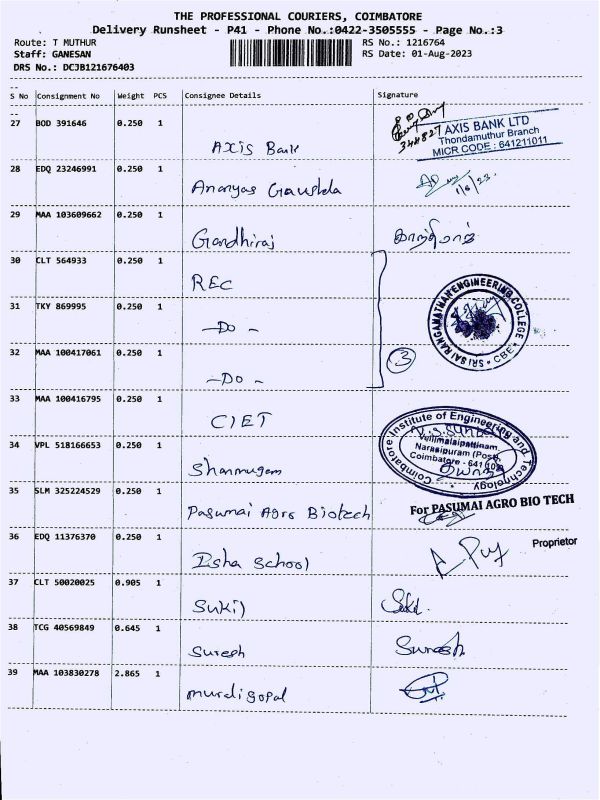 THE PROFESSIONAL COURIERS, COIMBATORE
Delivery Runsheet - P41 - Phone No.:0422-3505555 - Page No.:3
Route: T MUTHUR
RS No.: 1216764
Staff: GANESAN
RS Date: 01-Aug-2023
DRS No.: DCJB121676403
S No Consignment No Weight PCS Consignee Details Signature
27 BOD 391646 0.250 1 Axis Bank
344827 AXIS BANK LTD
Thondamuthur Branch
MICR CODE : 641211011
28 EDQ 23246991 0.250 1 Ananyas
29 MAA 103609662 0.250 1 Gandhiraj காந்திராஜ்
30 CLT 564933 0.250 1 REC
31 TKY 869995 0.250 1 -Do-
32 MAA 100417061 0.250 1 -Do- 3
SRI SAI RANGANATHAN ENGINEERING COLLEGE
CBE
33 MAA 100416795 0.250 1 CIET
Coimbatore Institute of Engineering and Technology
Vellimalaipattinam,
Narasipuram (Post),
Coimbatore - 641 109
34 VPL 518166653 0.250 1 Shanmugam
35 SLM 325224529 0.250 1 Pasumai Agro Biotech
For PASUMAI AGRO BIO TECH
Proprietor
36 EDQ 11376370 0.250 1 Isha School
37 CLT 50020025 0.905 1 Sukil
38 TCG 40569849 0.645 1 Suresh Suresh
39 MAA 103830278 2.865 1 muraligopal